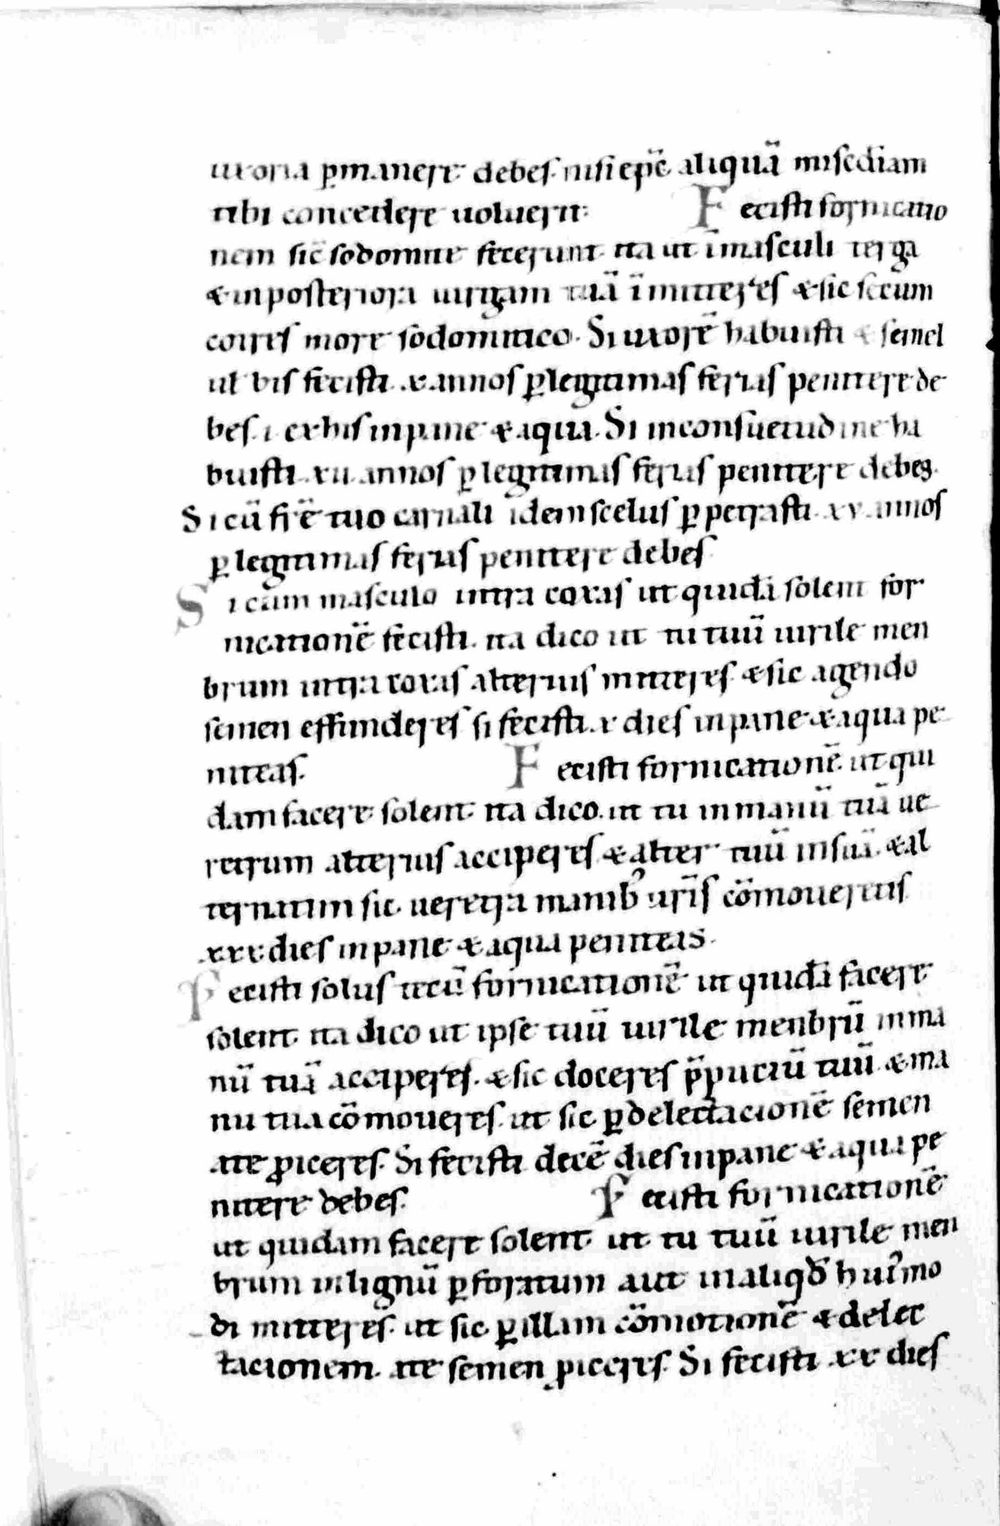 uxoria p̄manere debes. nisi ep̄c aliquā misc̄diam
tibi concedere uoluerit.     Fecisti fornicatio
nem sic̄ sodomite fecerunt. ita ut īmasculi terga
& inposteriora uirgam tuā īmitteres & sic secum
coires more sodomitico. Si uxorē habuisti & semel
ul bis fecisti .x. annos p̄legitimas ferias penitere de
bes. i. ex his inpane & aqua. Si inconsuetudine ha
buisti .xii. annos p̄ legitimas ferias penitere debes.
Si cū fr̄e tuo carnali idem scelus p̄petrasti. xv. annos
p̄ legitimas ferias penitere debes
Si cum masculo intra coxas ut quidā solent for
nicationē fecisti. ita dico ut tu tuū uirile men
brum intra coxas alterius mitteres. & sic agendo
semen effunderes si fecisti .x dies inpane & aqua pe
niteas.     Fecisti fornicationē. ut qui
dam facere solent. ita dico. ut tu in manū tuā ue
retrum alterius acciperes & alter tuū insuā. & al
ternatim sic. ueretra manib; ur̄is cōmoueretis
.xxx dies inpane & aqua peniteas.
Fecisti solus tecū fornicationē ut quidā facere
solent. ita dico ut ipse tuū uirile menbrū inma
nū tuā acciperes. & sic doceres p̄puciū tuū. & ma
nu tua cōmoueres. ut sic. p̄delectacionē semen
a te p̄iceres. Si fecisti decē dies inpane & aqua pe
nitere debes.     Fecisti fornicationē
ut quidam facere solent. ut tu tuū uirile men
brum in lignū p̄foratum aut inaliqd̄ hui̓mo
di mitteres. ut sic. p̄illam cōmotionē & delec
tacionem. a te semen p̄iceres. Si fecisti .xx dies